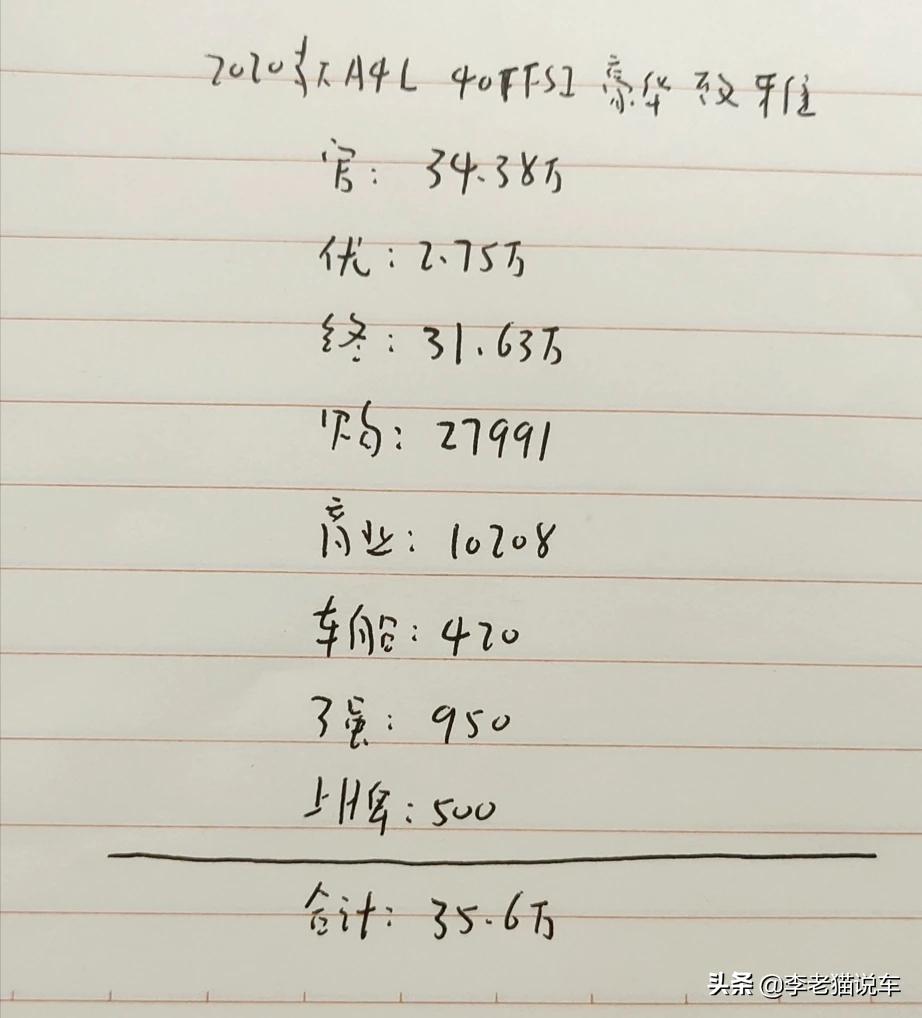 2020款A4L 40TFSI 豪华致雅
官: 34.38万
优: 2.75万
终: 31.63万
购: 27991
商业: 10208
车船: 420
交强: 950
上牌: 500
合计: 35.6万
头条 @李老猫说车